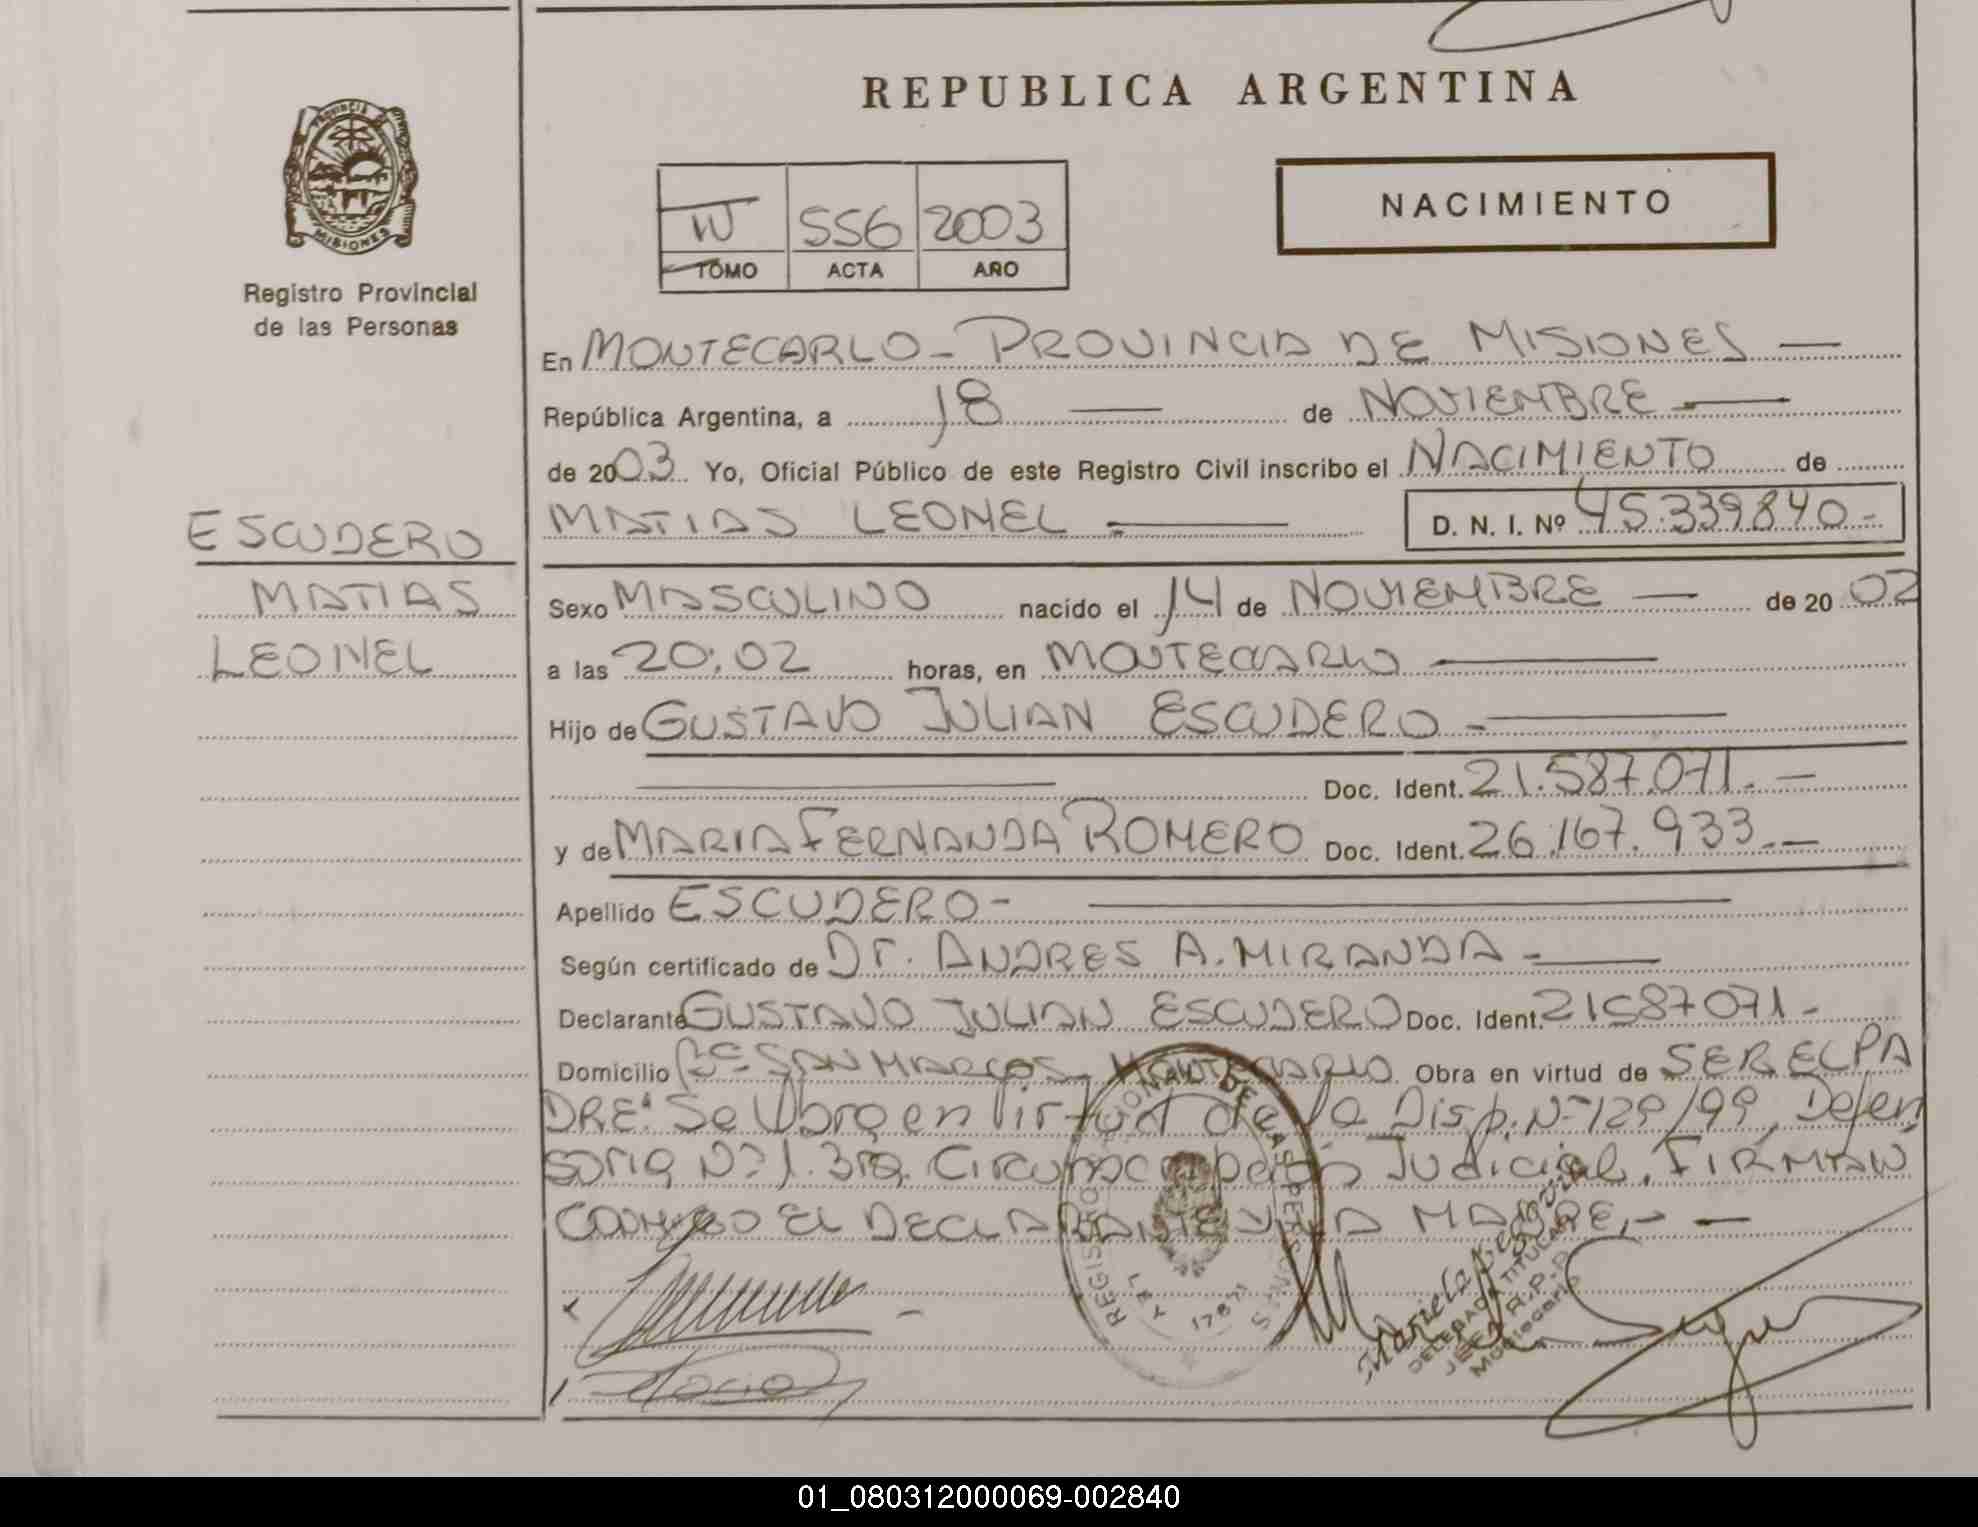 REPUBLICA ARGENTINA
PROVINCIA DE
MISIONES
Registro Provincial
de las Personas
IV 556 2003
TOMO ACTA AÑO
NACIMIENTO
En MONTECARLO - PROVINCIA DE MISIONES —
República Argentina, a 18 — de NOVIEMBRE —
de 2003 Yo, Oficial Público de este Registro Civil inscribo el NACIMIENTO de
MATIAS LEONEL — D. N. I. Nº 45.339.840.-
ESCUDERO
MATIAS
LEONEL
Sexo MASCULINO nacido el 14 de NOVIEMBRE — de 2002
a las 20:02 horas, en MONTECARLO —
Hijo de GUSTAVO JULIAN ESCUDERO —
Doc. Ident. 21.587.071. —
y de MARIA FERNANDA ROMERO Doc. Ident. 26.167.933. —
Apellido ESCUDERO - —
Según certificado de Dr. ANDRES A. MIRANDA —
Declarante GUSTAVO JULIAN ESCUDERO Doc. Ident. 21587071 -
Domicilio Bº SAN MARCOS - MONTECARLO Obra en virtud de SER EL PA
DRE. Se labra en virtud de la Disp. Nº 129/99, Defen
soria Nº 1. 3ra. Circunscripción Judicial. FIRMAN
CONMIGO EL DECLARANTE Y LA MADRE. - —
REGISTRO DE LAS PERSONAS
LEY 17671
Mariela
DELEGADA TITULAR
R.P.P.
Montecarlo
01_080312000069-002840